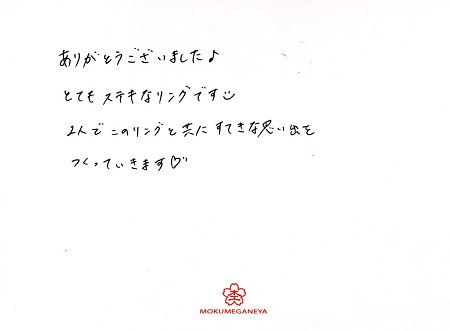 ありがとうございました♪
とてもステキなリングです☺
2人でこのリングと共にすてきな思い出を
つくっていきます♡
MOKUMEGANEYA